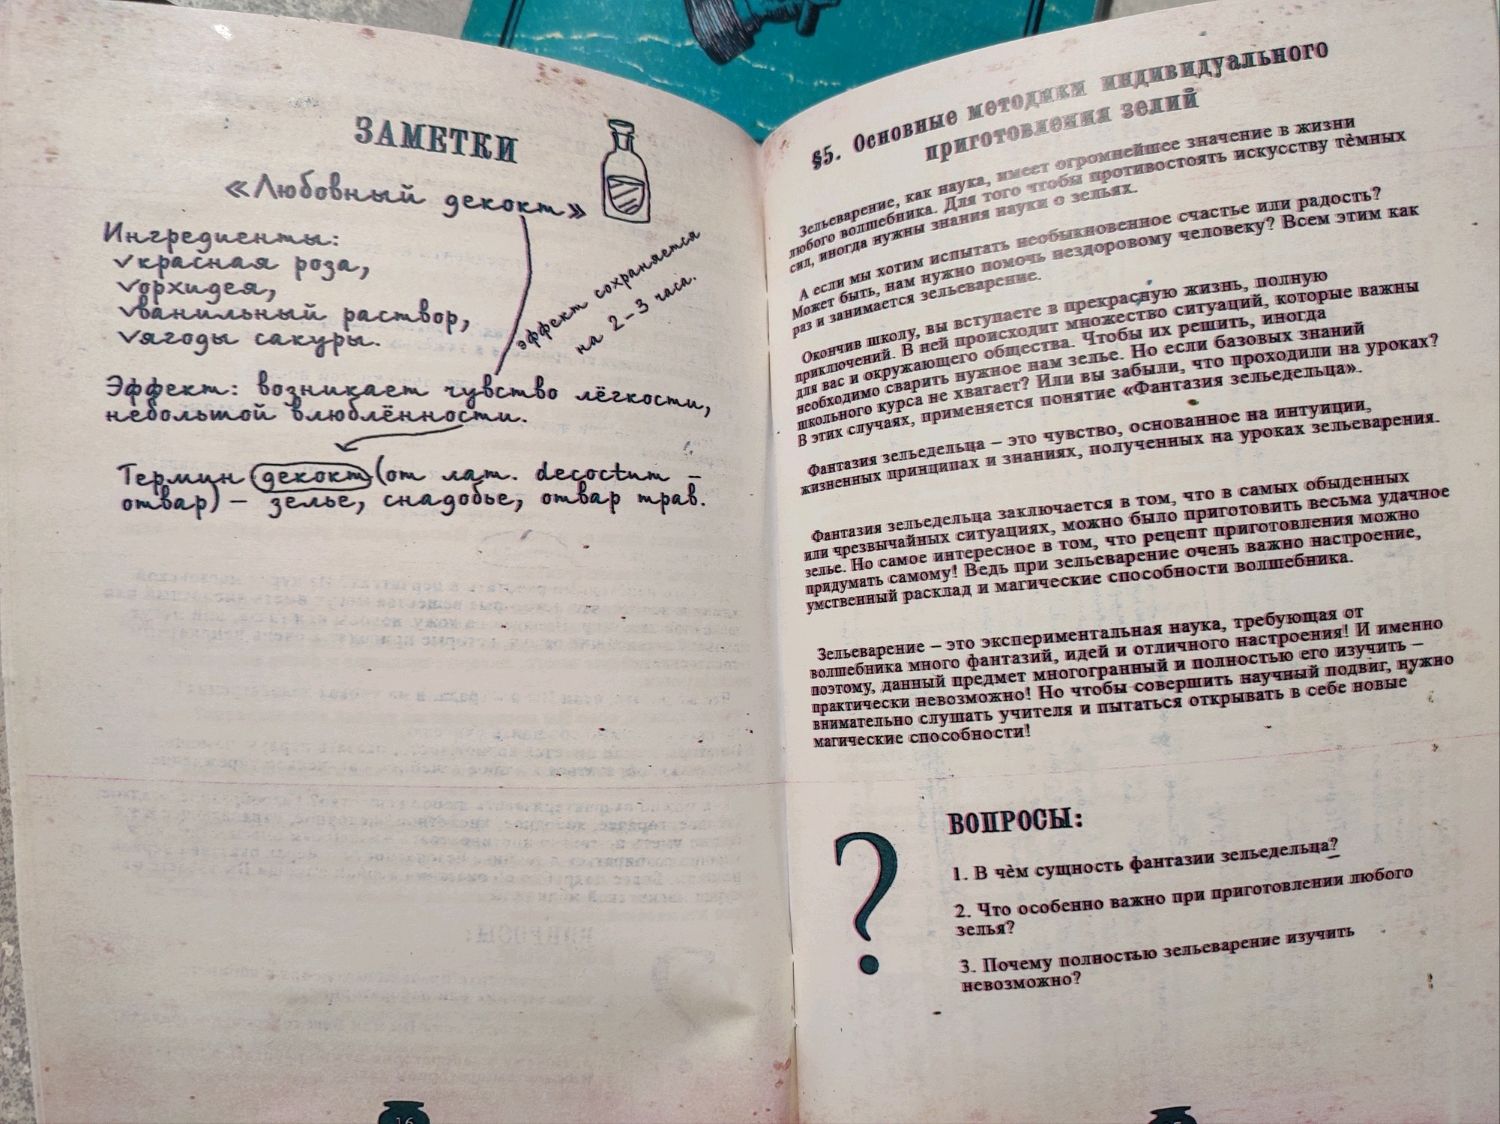 ЗАМЕТКИ
«Любовный декокт»
Ингредиенты:
✓красная роза,
✓орхидея,
✓ванильный раствор,
✓ягоды сакуры.
эффект сохраняется
на 2–3 часа.
Эффект: возникает чувство лёгкости,
небольшой влюблённости.
Термин декокт (от лат. decoctum –
отвар) – зелье, снадобье, отвар трав.
16
§5. Основные методики индивидуального
приготовления зелий
Зельеварение, как наука, имеет огромнейшее значение в жизни
любого волшебника. Для того чтобы противостоять искусству тёмных
сил, иногда нужны знания науки о зельях.
А если мы хотим испытать необыкновенное счастье или радость?
Может быть, нам нужно помочь нездоровому человеку? Всем этим как
раз и занимается зельеварение.
Окончив школу, вы вступаете в прекрасную жизнь, полную
приключений. В ней происходит множество ситуаций, которые важны
для вас и окружающего общества. Чтобы их решить, иногда
необходимо сварить нужное нам зелье. Но если базовых знаний
школьного курса не хватает? Или вы забыли, что проходили на уроках?
В этих случаях, применяется понятие «Фантазия зельедельца».
Фантазия зельедельца – это чувство, основанное на интуиции,
жизненных принципах и знаниях, полученных на уроках зельеварения.
Фантазия зельедельца заключается в том, что в самых обыденных
или чрезвычайных ситуациях, можно было приготовить весьма удачное
зелье. Но самое интересное в том, что рецепт приготовления можно
придумать самому! Ведь при зельеварение очень важно настроение,
умственный расклад и магические способности волшебника.
Зельеварение – это экспериментальная наука, требующая от
волшебника много фантазий, идей и отличного настроения! И именно
поэтому, данный предмет многогранный и полностью его изучить –
практически невозможно! Но чтобы совершить научный подвиг, нужно
внимательно слушать учителя и пытаться открывать в себе новые
магические способности!
?
ВОПРОСЫ:
1. В чём сущность фантазии зельедельца?
2. Что особенно важно при приготовлении любого
зелья?
3. Почему полностью зельеварение изучить
невозможно?